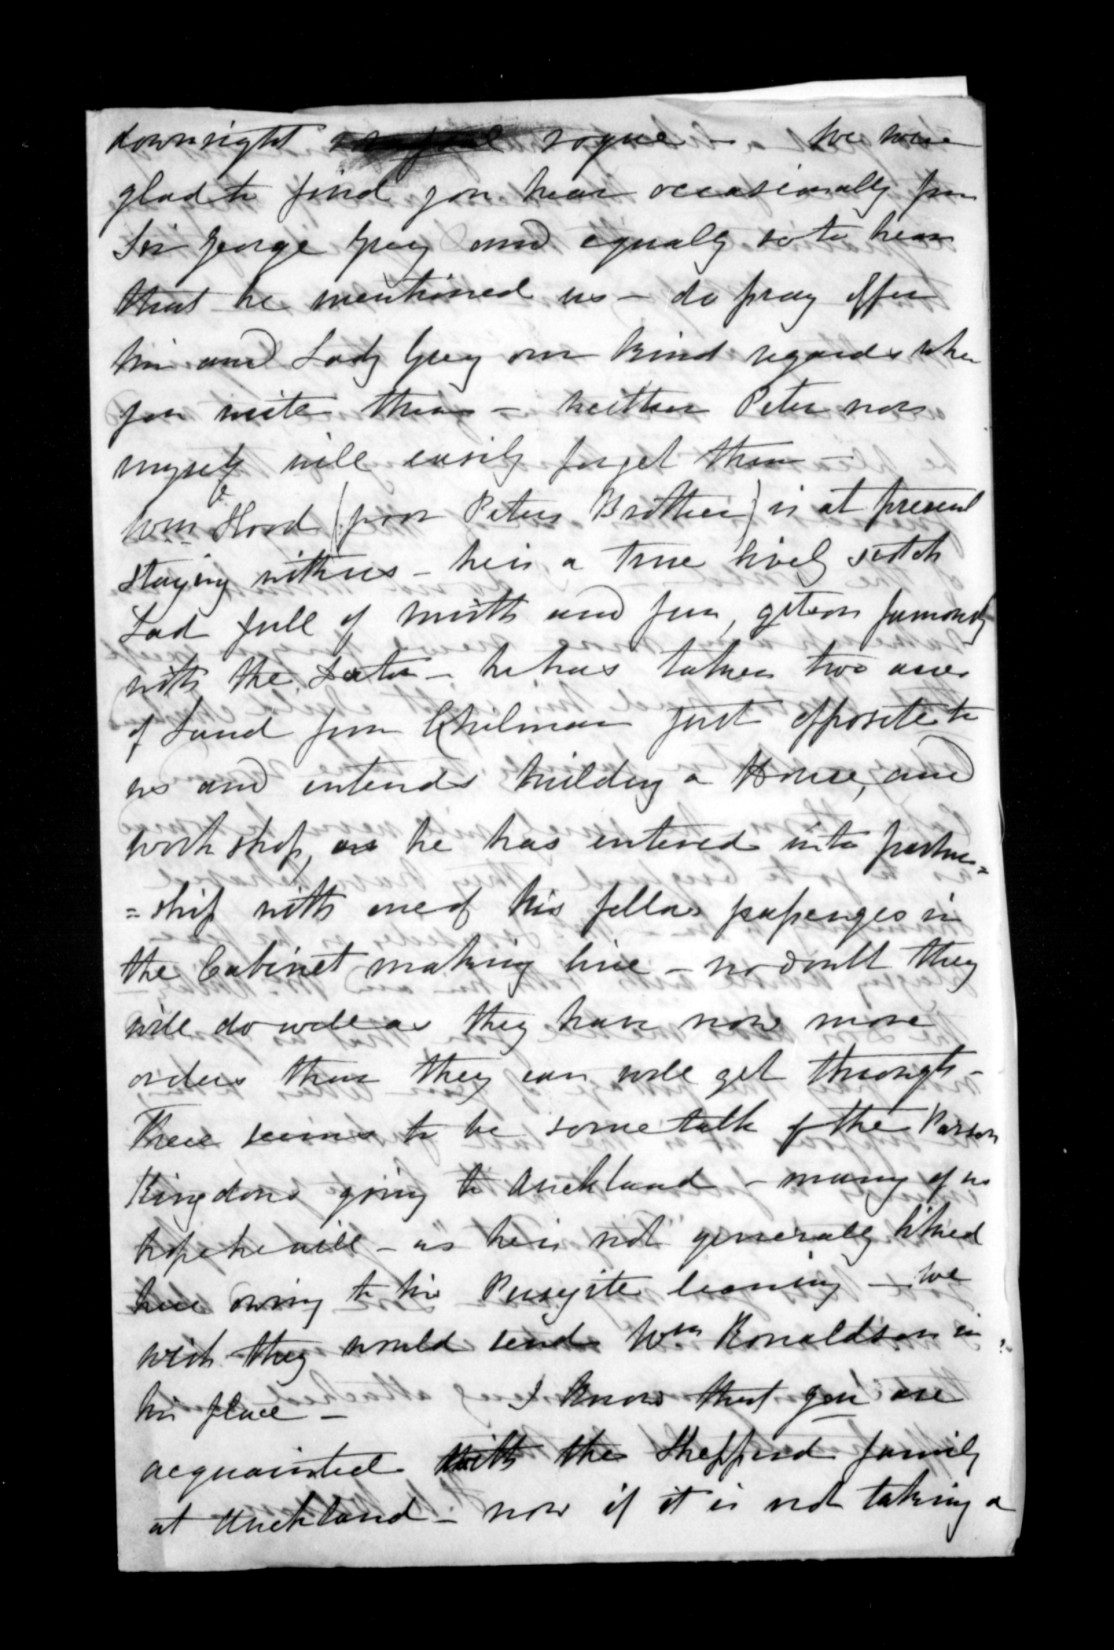 downright rogue – We were
glad to find you hear occasionally from
Sir George Grey and equally so to hear
that he mentioned us – do pray offer
him and Lady Grey our kind regards when
you write them – neither Peter nor
myself will easily forget them –
Wm Hood (poor Peters Brother) is at present
staying with us – he is a true lively scotch
Lad full of mirth and fun, gets on famously
with the – he has taken two acres
of Land from Chilman just opposite to
us and intends building a House, and
work shop, as he has entered into partner=
=ship with one of his fellow passengers in
the Cabinet making line – no doubt they
will do well as they have now more
orders than they can well get through –
There seems to be some talk of the Parson
Kingdons going to Auckland – many of us
hope he will – as he is not generally liked
here owing to his Puseyite leaning – we
wish they would send Wm Ronaldson in
his place – I know that you are
acquainted with the Shepherd family
at Auckland – now if it is not taking a